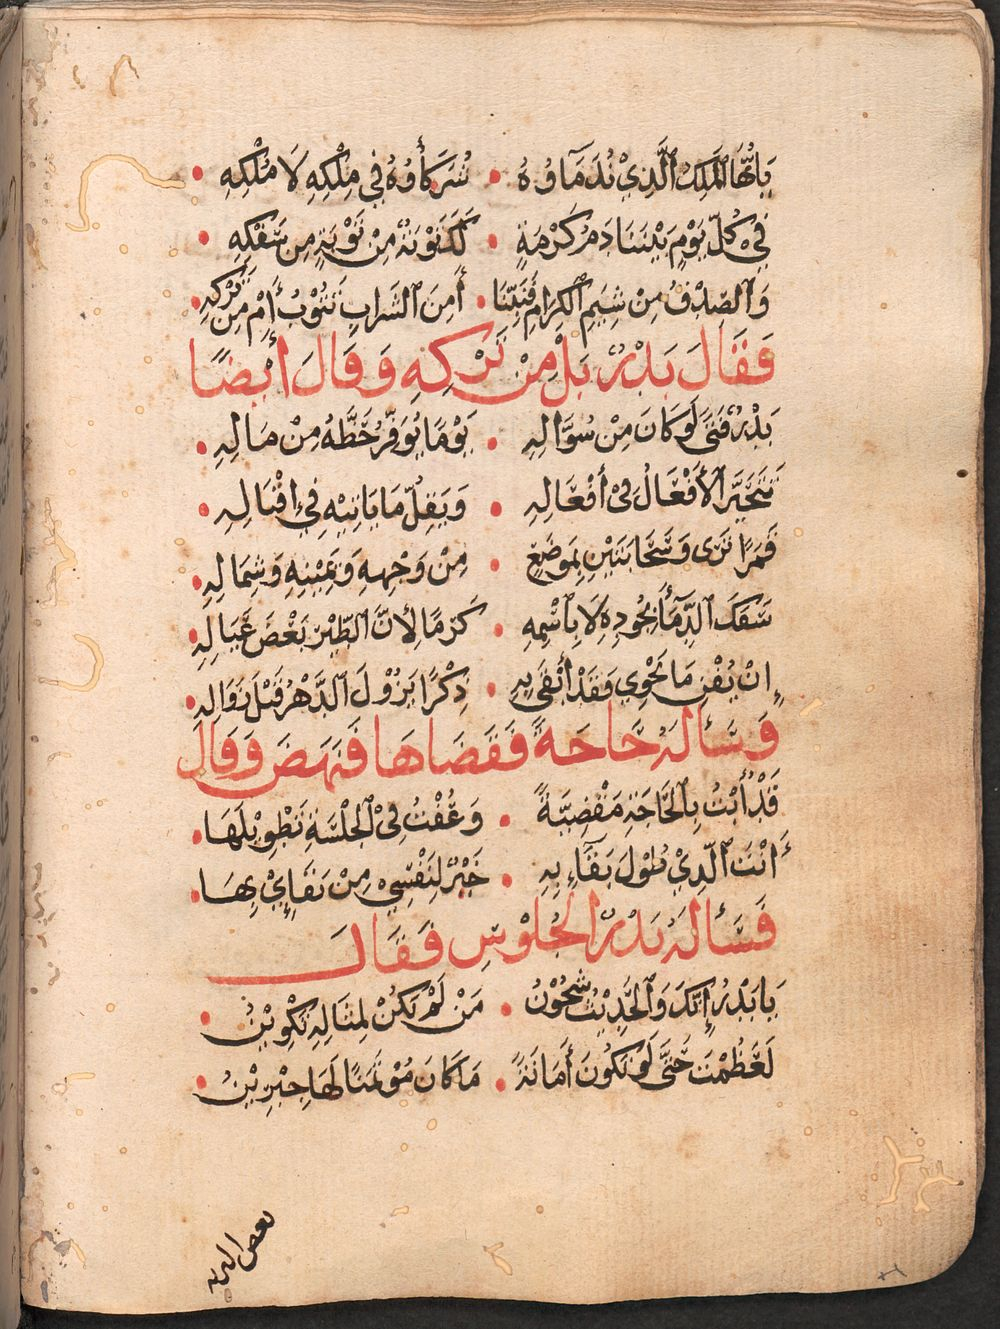 يَا أَيُّهَا ٱلْمَلِكُ ٱلَّذِيْ نُدَمَآؤُهُ • شُرَكَآؤُهُ فِي مِلْكِهِ لَا مُلْكِهِ •
فِيْ كُلِّ يَوْمٍ بَيْنَنَا دَمُ كَرْمَةٍ • لَكَ تَوْبَةٌ مِنْ تَوْبَةٍ مِن سَفْكِهِ •
وَٱلصِّدْقُ مِنْ شِيَمِ ٱلكِرَامِ فَنَبِّنَا • أَمِنَ ٱلشَّرَابِ تَتُوْبُ أَمْ مِن تَرْكِهِ •
فَقَالَ بَدْرٌ بَلْ مِنْ تَرْكِهِ وَقَالَ أَيضًا
بَدْرٌ فَتًى لَوْ كَانَ مِنْ سُؤَّالِهِ • يَوْمًا تُوَفِّرُ حَظَّهُ مِنْ مَالِهِ •
تَتَحَيَّرُ ٱلأَفْعَالُ فِيْ أَفْعَالِهِ • وَيَقِلُّ مَا يَاتِيْهِ فِيْ اقْبَالِهِ •
قَمَرًا نَرَى وَسَحَابَتَيْنِ بِمَوْضِعٍ • مِنْ وَجْهِهِ وَيَمِيْنِهِ وَشِمَالِهِ •
سَفَكَ ٱلدِّمَآءَ بِجُوْدِهِ لَا بَاْسِهِ • كَرَمًا لأَنَّ ٱلطَّيْرَ بَعْضُ عَيَالِهِ •
إِنْ يُفْنِ مَا يَحْوِي فَقَدْ أَبْقَى بِهِ • ذِكْرًا يَزُوْلُ ٱلدَّهْرُ قَبْلَ زَوَالِهِ •
وَسَأَلَهُ حَاجَةً فَقَضَاهَا فَنَهَضَ وَقَالَ
قَدْ أُبْتُ بِٱلحَاجَةِ مَقْضِيَّةً • وَعُفْتُ فِيْ ٱلجَلْسَةِ تَطْوِيْلَهَا •
أَنْتَ ٱلَّذِيْ طُوْلُ بَقَآءٍ بِهِ • خَيْرٌ لِنَفْسِيْ مِنْ بَقَايِيْ بِهَا •
فَسَأَلَهُ بَدْرٌ الجُلُوْسَ فَقَالَ
يَا بَدْرُ إِنَّكَ وَٱلحَدِيْثُ شُجُوْنُ • مَنْ لَمْ يَكُنْ لِمِثَالِهِ تَكْوِيْنُ •
لَعَظُمْتَ حَتَّى لَوْ تَكُوْنُ أَمَانَةً • مَا كَانَ مُوْتَمَنًا لَهَا جِبْرِيْنُ •